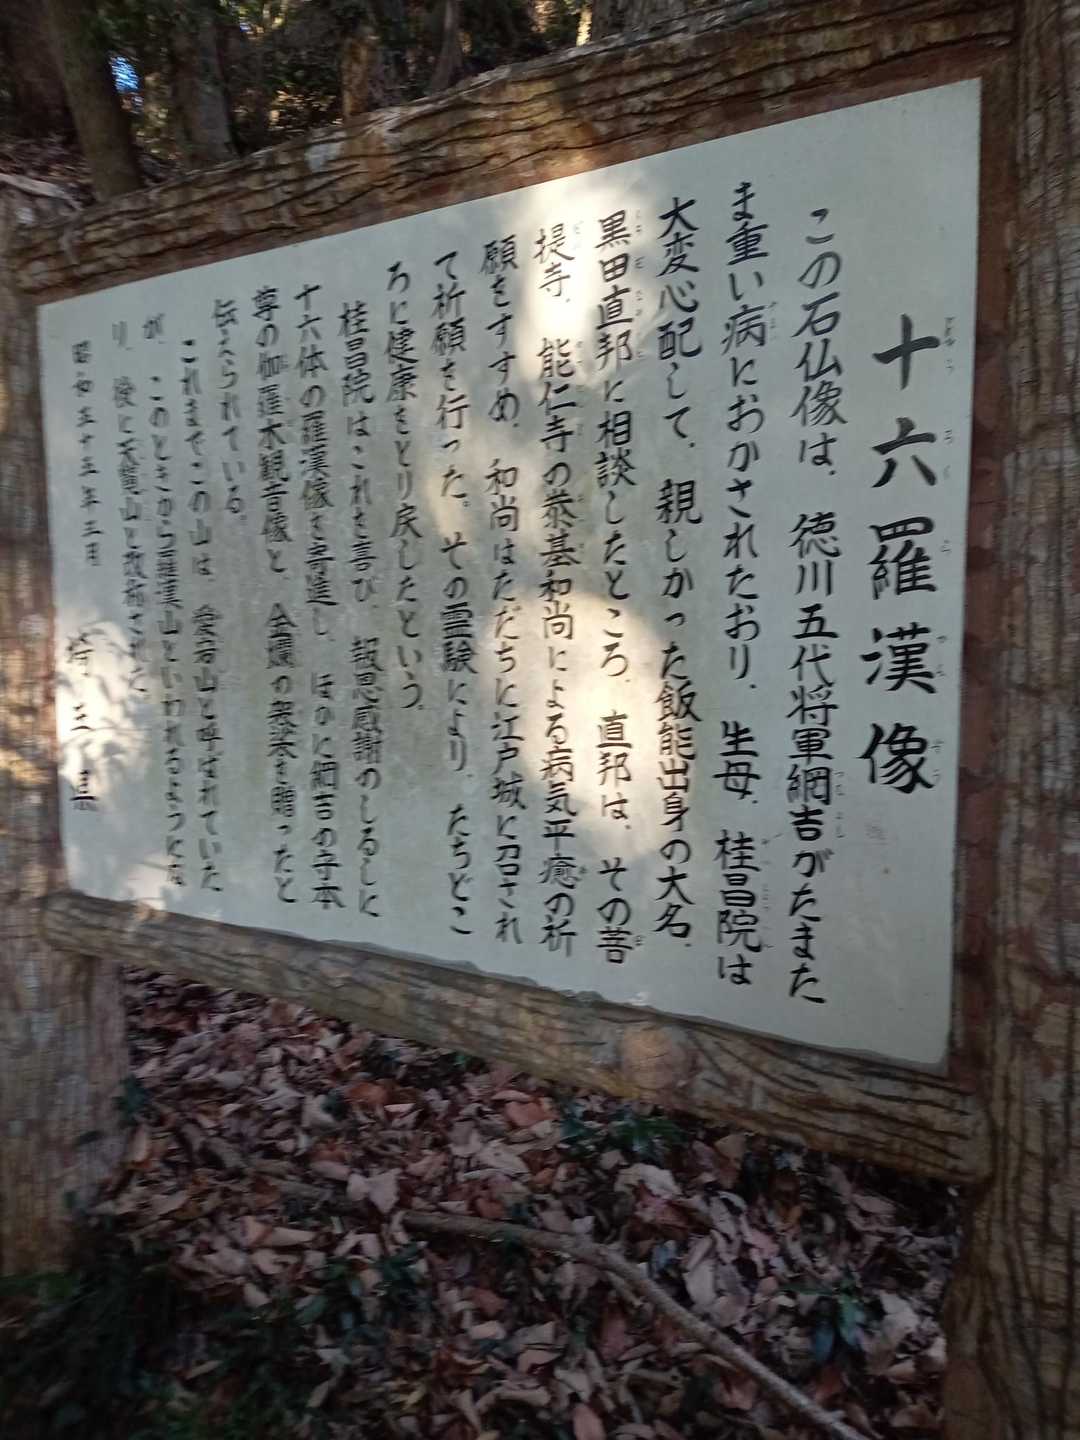 十六羅漢像
この石仏像は、徳川五代将軍綱吉がたまた
ま重い病におかされたおり、生母、桂昌院は
大変心配して、親しかった飯能出身の大名、
黒田直邦に相談したところ、直邦は、その菩
提寺、能仁寺の泰基和尚による病気平癒の祈
願をすすめ、和尚はただちに江戸城に召され
て祈願を行った。その霊験により、たちどこ
ろに健康をとり戻したという。
桂昌院はこれを喜び、報恩感謝のしるしに
十六体の羅漢像を寄進し、ほかに綱吉の守本
尊の伽羅木観音像と、金襴の袈裟を贈ったと
伝えられている。
これまでこの山は、愛宕山と呼ばれていた
が、このときから羅漢山といわれるようにな
り、後に天覧山と改称された
昭和五十五年三月
埼玉県